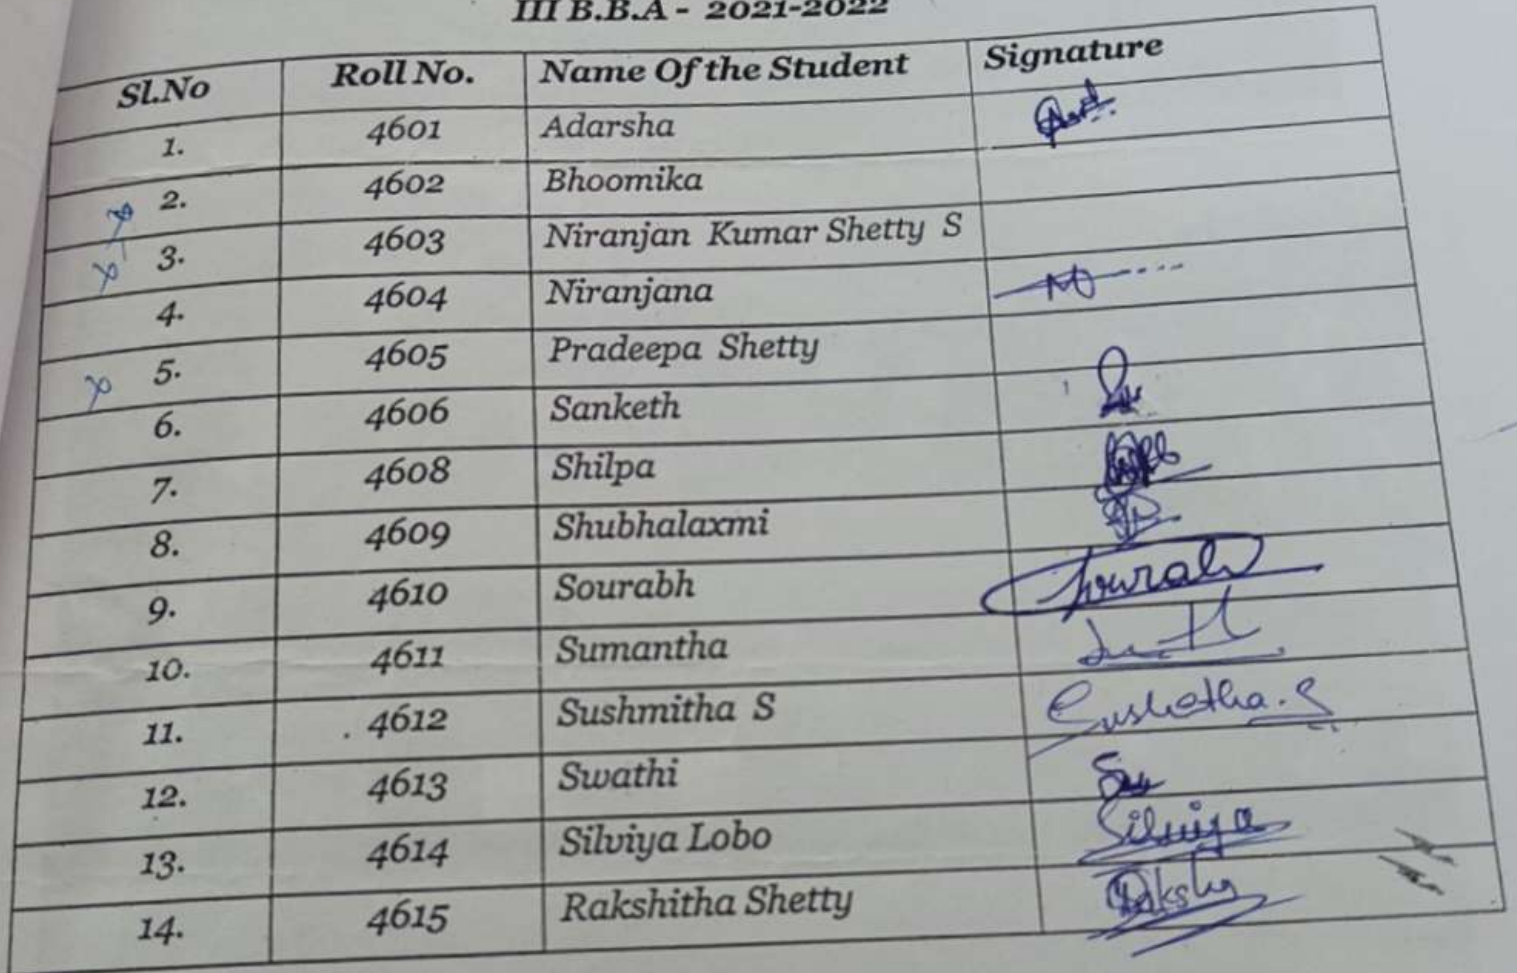 III B.B.A - 2021-2022
Sl.No Roll No. Name Of the Student Signature
1. 4601 Adarsha
2. 4602 Bhoomika
3. 4603 Niranjan Kumar Shetty S
4. 4604 Niranjana
5. 4605 Pradeepa Shetty
6. 4606 Sanketh
7. 4608 Shilpa
8. 4609 Shubhalaxmi
9. 4610 Sourabh Sourabh
10. 4611 Sumantha
11. 4612 Sushmitha S
12. 4613 Swathi
13. 4614 Silviya Lobo Silviya
14. 4615 Rakshitha Shetty